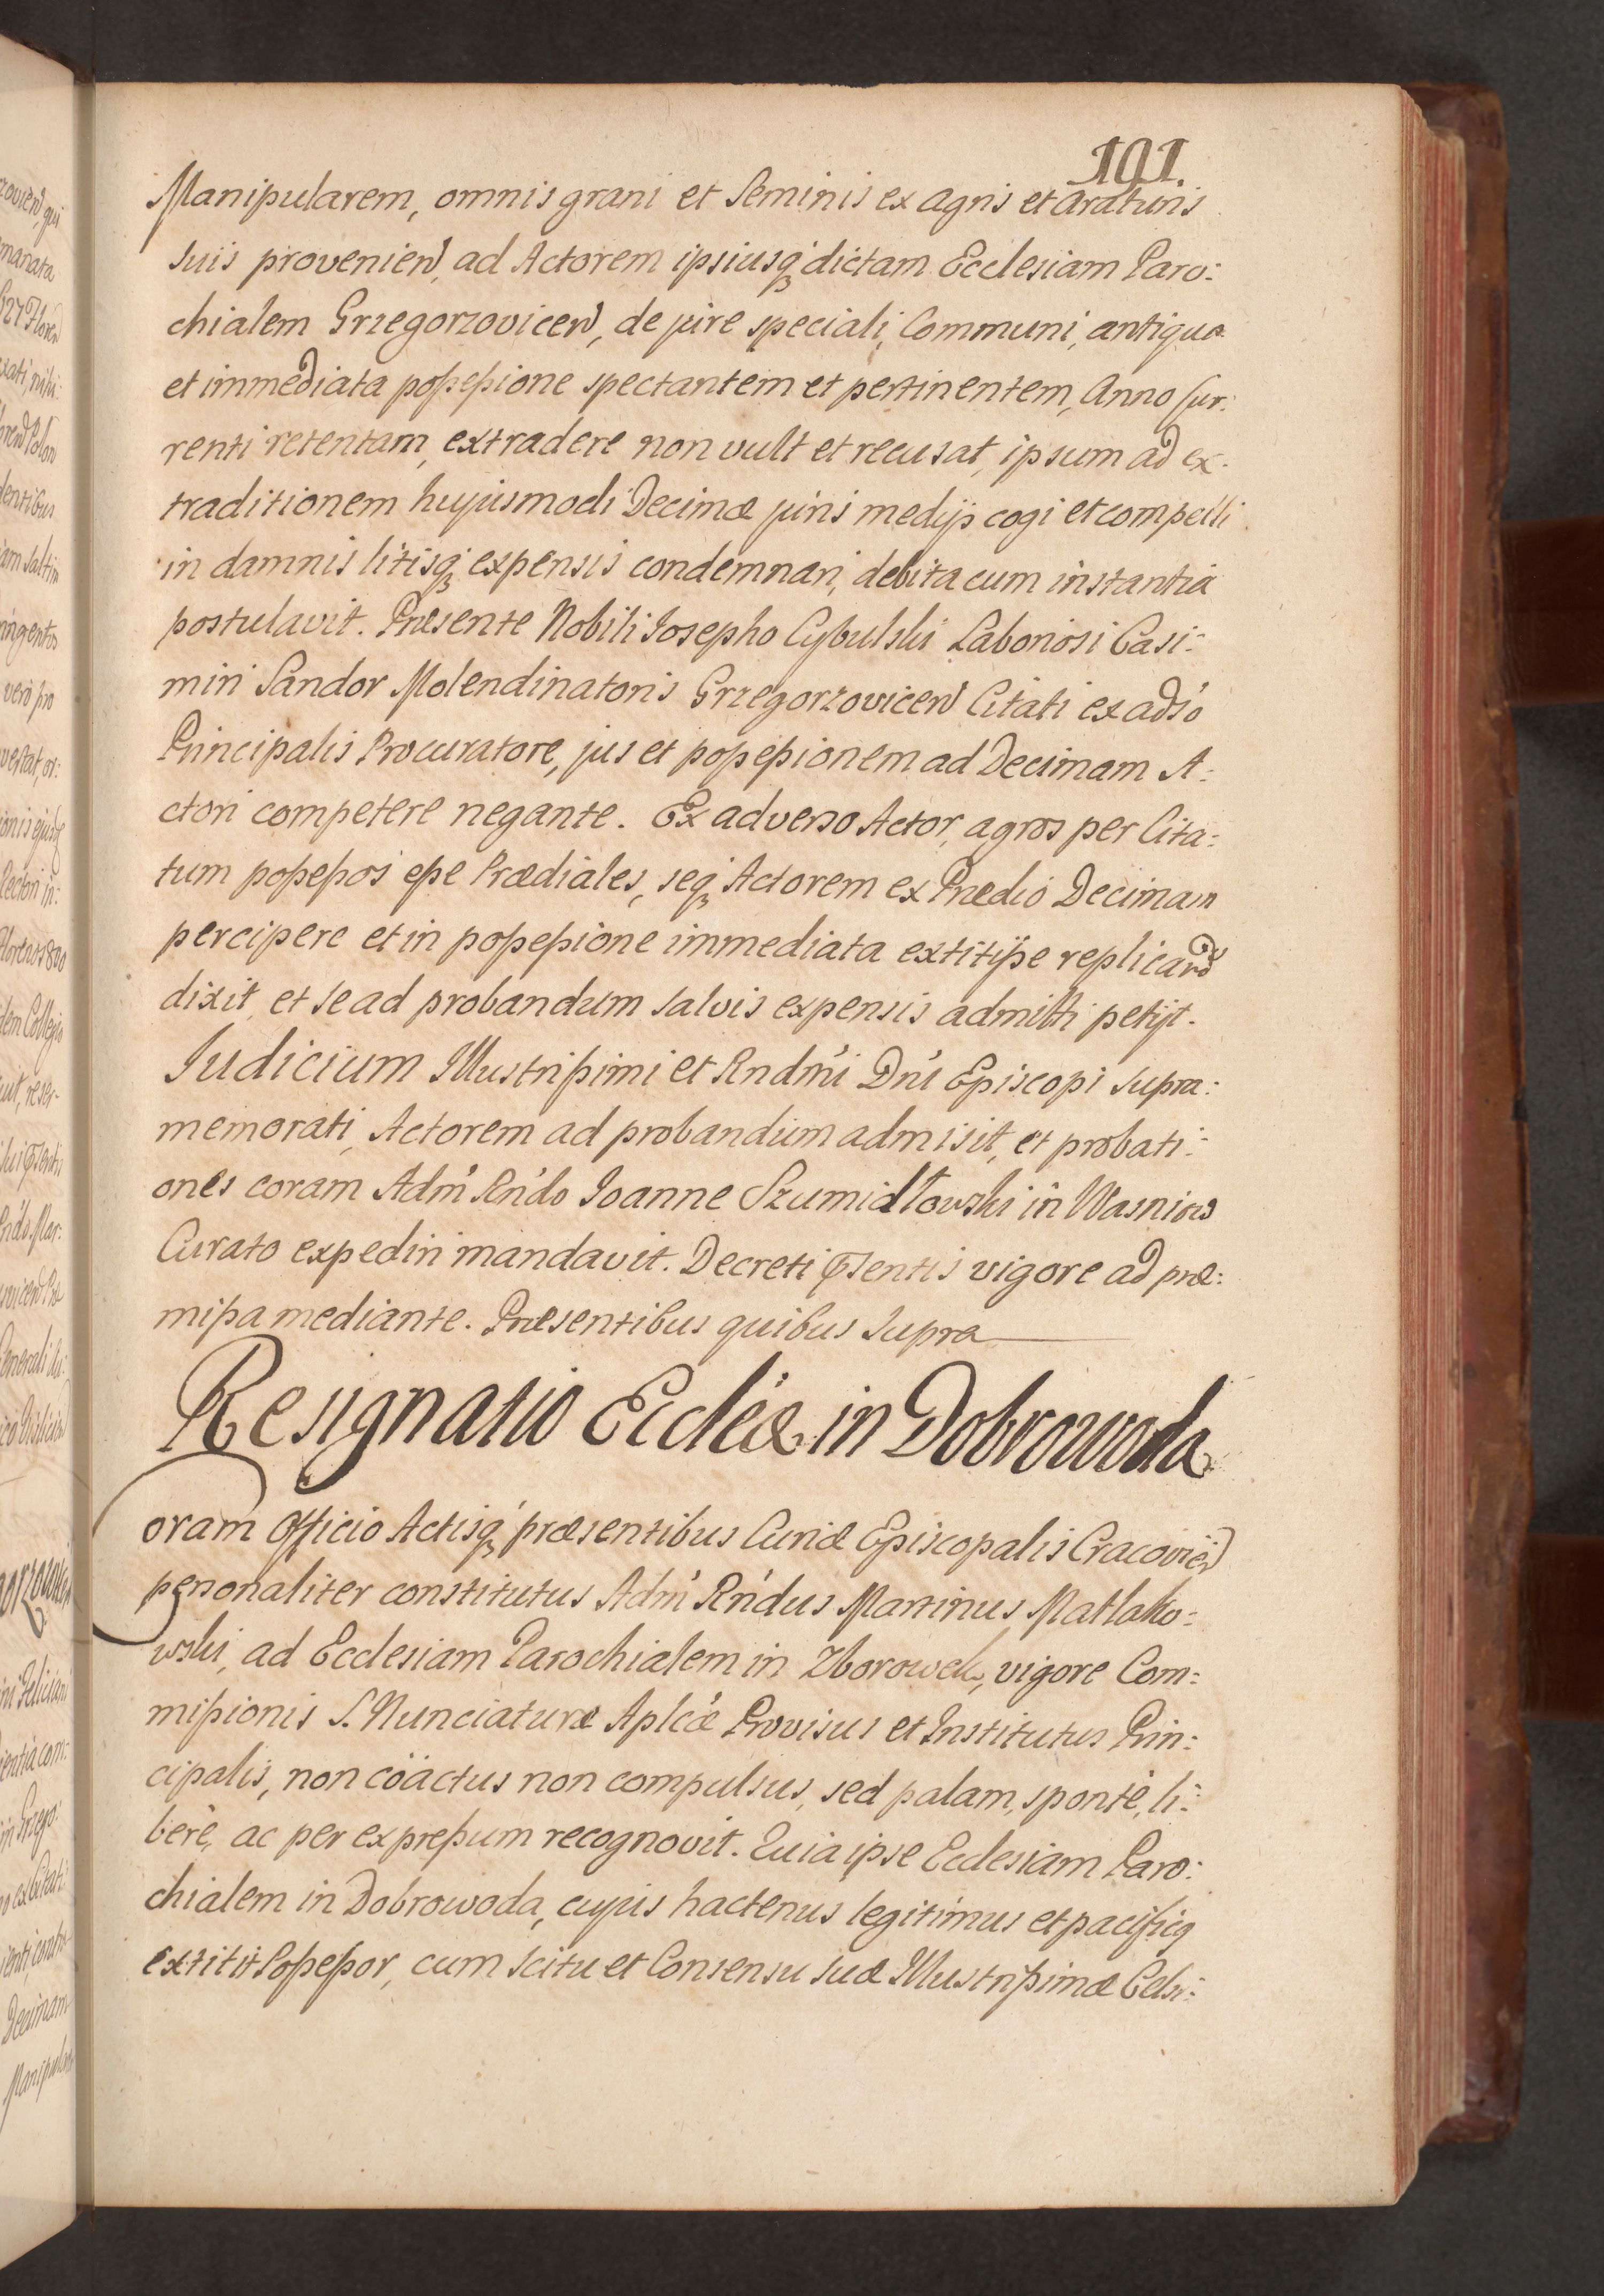 101.
Manipularem, omnis grani et Seminis ex agris et Araturis
suis provenien, ad Actorem ipsiusq dictam Ecclesiam Paro:
chialem Grzegorzovicen, de jure speciali, Communi, antiqua
et immediata possessione spectantem et pertinentem, Anno Cur:
renti retentam, extradere non vult et recusat, ipsum ad ex:
traditionem hujusmodi Decimæ juris medijs cogi et compelli
in damnis litisq expensis condemnari, debita cum instantia
postulavit. Præsente Nobili Iosepho Cybulski Laboriosi Casi:
miri Sandor Molendinatoris Grzegorzovicen Citati ex adso
Principalis Procuratore, jus et possessionem ad Decimam A:
ctori competere negante. Ex adverso Actor, agros per Cita:
tum possessos esse Prædiales, seq Actorem ex Prædio Decimam
percipere et in possessione immediata extitisse replicando
dixit, et se ad probandum salvis expensis admitti petijt.
Iudicium Illustrissimi et Rndmi Dni Episcopi supra:
memorati, Actorem ad probandum admisit, et probati:
ones coram Adm Rndo Ioanne Szumidłowski in Wasniow
Curato expediri mandavit. Decreti pntis vigore ad præ:
missa mediante. Præsentibus quibus supra
Resignatio Ecclæ in Dobrowoda
Coram Officio Actisq præsentibus Curiæ Episcopalis Cracovien
personaliter constitutus Adm Rndus Martinus Matlako:
wski, ad Ecclesiam Parochialem in Zborowek, vigore Com:
missionis S. Nunciaturæ Aplcæ Provisus et Institutus Prin:
cipalis, non coactus non compulsus, sed palam, sponte, li:
bere, ac per expressum recognovit. Quia ipse Ecclesiam Paro:
chialem in Dobrowoda, cujus hactenus legitimus et pacificq
extitit Possessor, cum scitu et Consensu suæ Illustrissimæ Celsi: